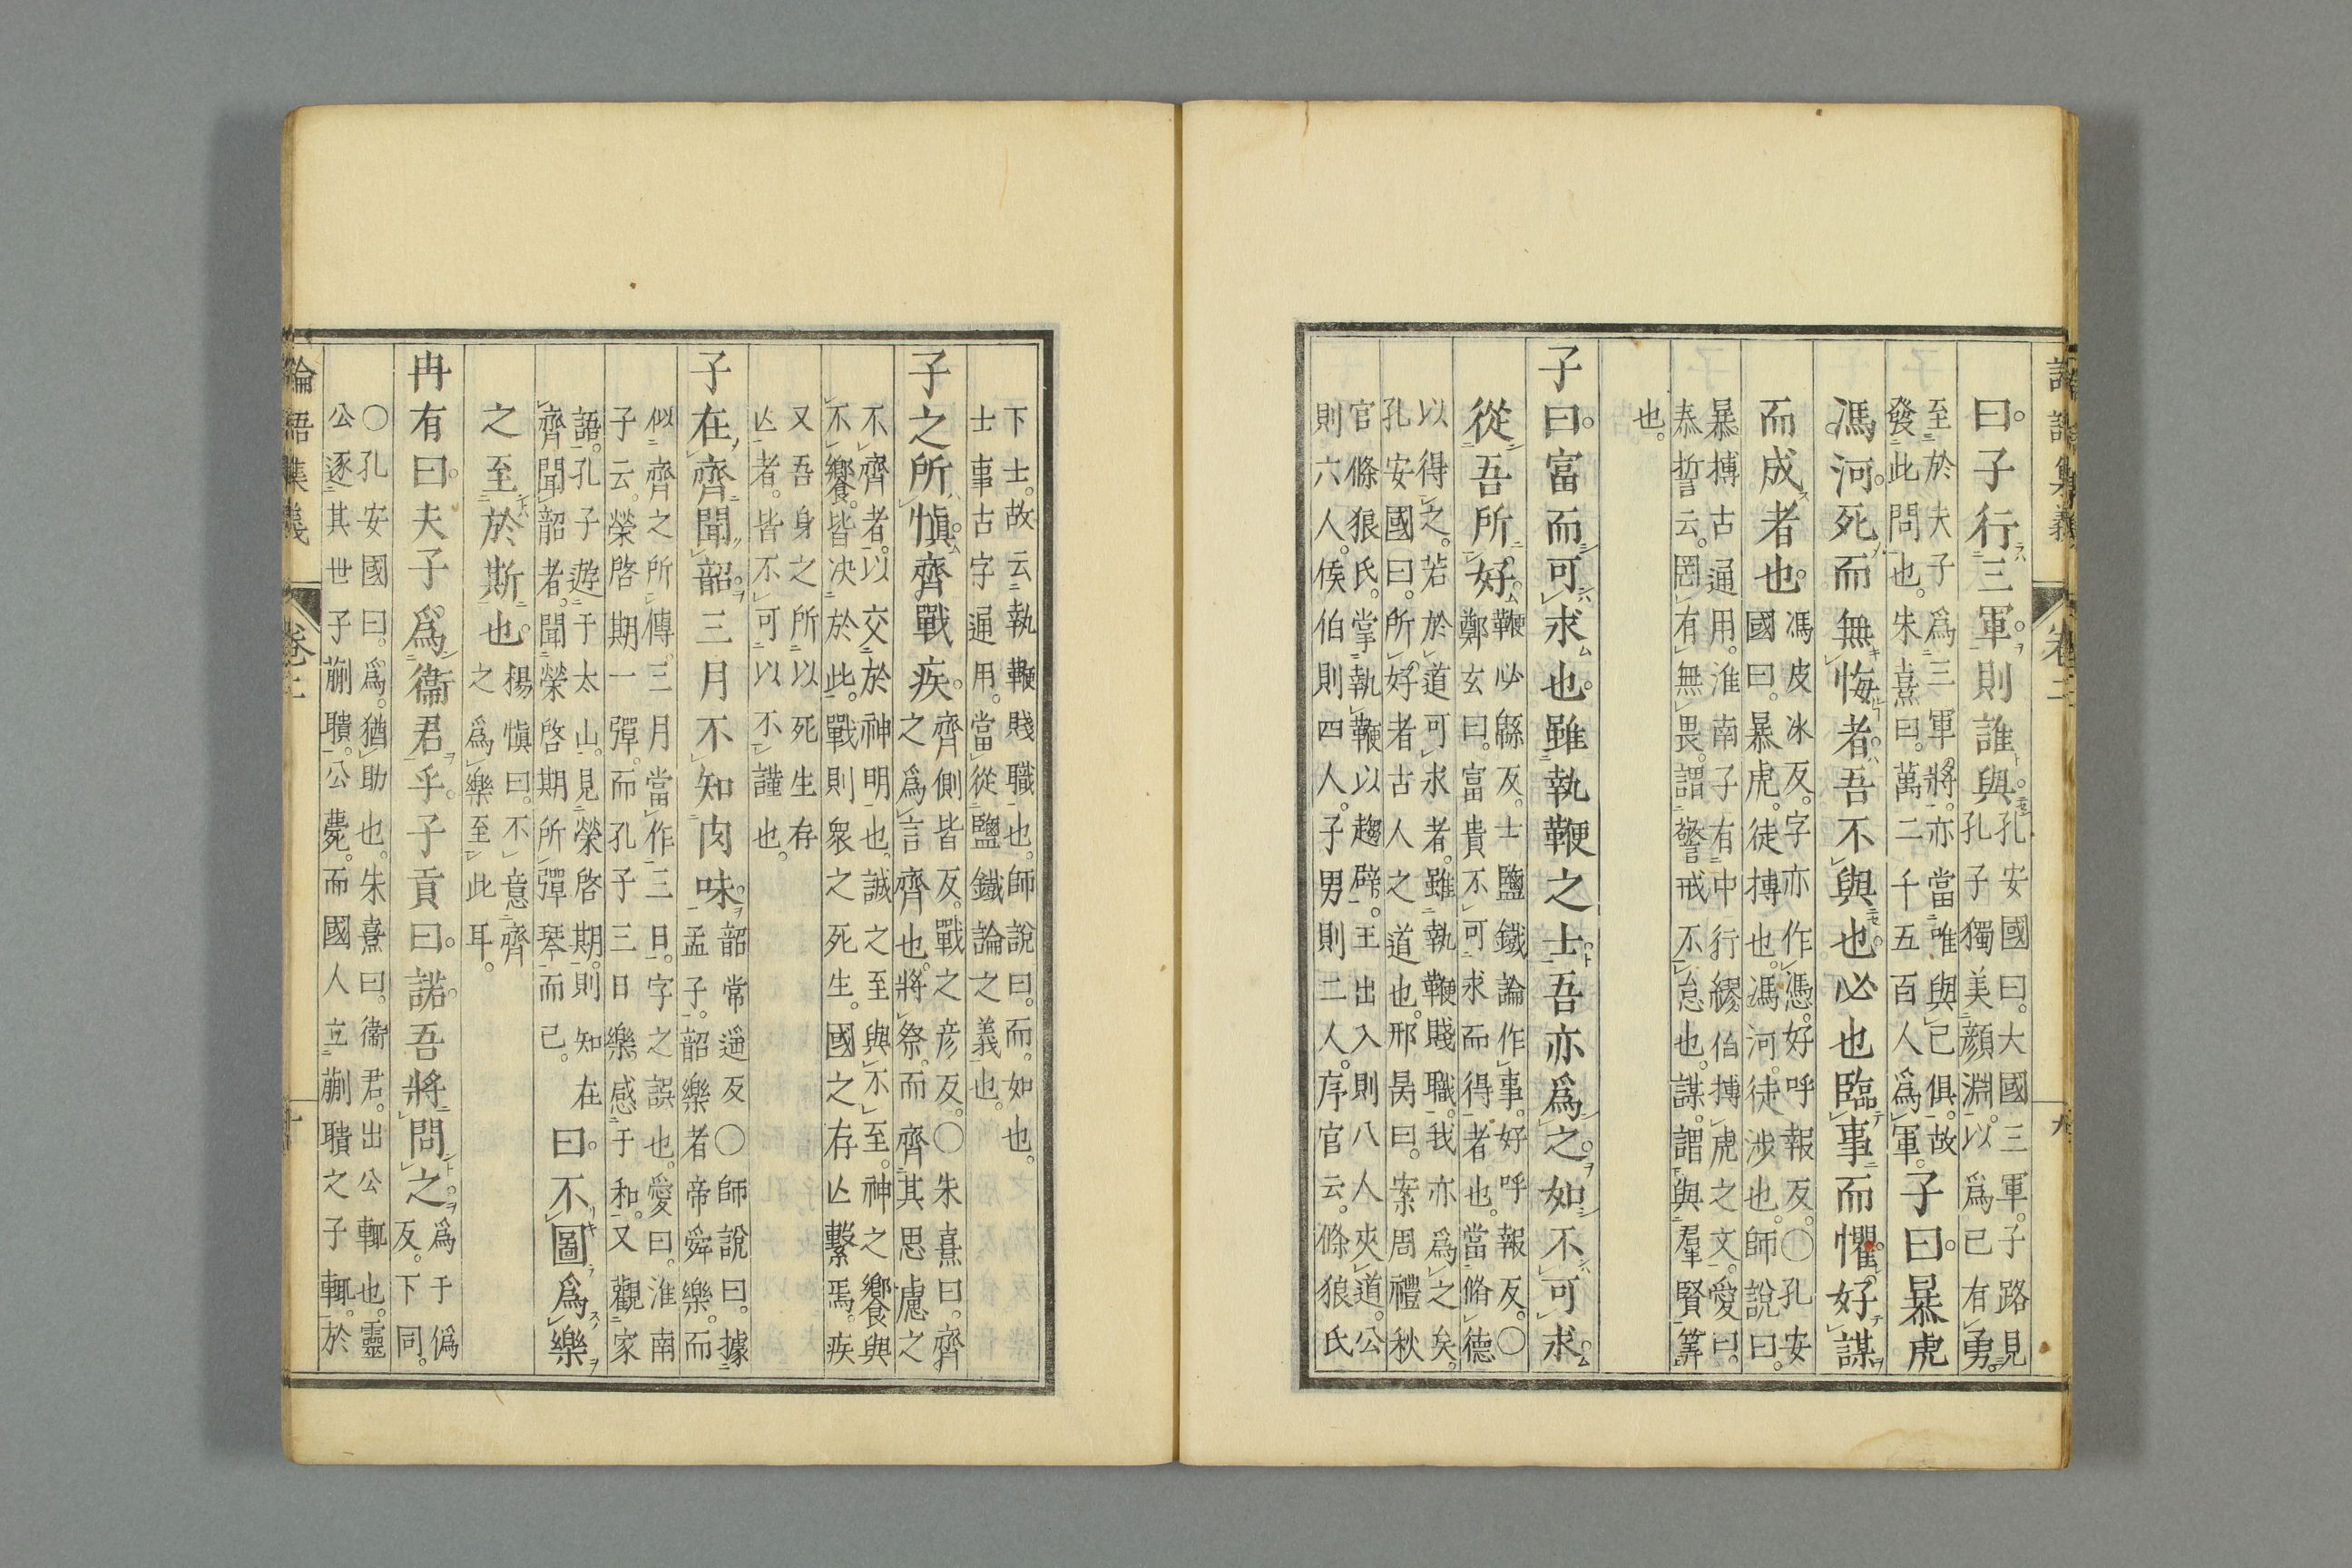 曰。子行三軍。則誰與。
孔安國曰。大國三軍。子路見
孔子獨美顏淵。以爲己有勇。
至於夫子爲三軍將。亦當唯與己俱。故
發此問也。朱熹曰。萬二千五百人爲軍。
子曰。暴虎
馮河。死而無悔者。吾不與也。必也臨事而懼。好謀
而成者也。
馮皮冰反。字亦作憑。好呼報反。〇孔安
國曰。暴虎。徒搏也。馮河。徒涉也。師說曰。
暴搏古通用。淮南子有中行繆伯搏虎之文。愛曰。
泰誓云。罔有無畏。謂警戒不怠也。謀。謂與羣賢筭
也。
子曰。富而可求也。雖執鞭之士。吾亦爲之。如不可求。
從吾所好。
鞭必緜反。士鹽鐵論作事。好呼報反。〇
鄭玄曰。富貴不可求而得者也。當脩德
以得之。若於道可求者。雖執鞭賤職。我亦爲之矣。
孔安國曰。所好者古人之道也。邢昺曰。案周禮秋
官條狼氏。掌執鞭以趨辟。王出入則八人夾道。公
則六人。侯伯則四人。子男則二人。序官云。條狼氏
下士。故云執鞭賤職也。師說曰。而。如也。
士事古字通用。當從鹽鐵論之義也。
子之所愼。齊戰疾。
齊側皆反。戰之彦反。〇朱熹曰。齊
之爲言齊也。將祭。而齊其思慮之
不齊者。以交於神明也。誠之至與不至。神之饗與
不饗。皆決於此。戰則衆之死生。國之存亾繫焉。疾
又吾身之所以死生存
亾者。皆不可以不謹也。
子在齊聞韶。三月不知肉味。
韶常遥反〇師說曰。據
孟子。韶樂者帝舜樂。而
似齊之所傳。三月當作三日。字之誤也。愛曰。淮南
子云。榮啓期一彈。而孔子三日樂感于和。又觀家
語。孔子遊于太山。見榮啓期。則知在
齊聞韶者。聞榮啓期所彈琴而已。
曰。不圖爲樂
之至於斯也。
楊愼曰。不意齊
之爲樂至此耳。
冉有曰。夫子爲衞君乎。子貢曰。諾。吾將問之。
爲于僞
反。下同。
〇孔安國曰。爲。猶助也。朱熹曰。衞君。出公輒也。靈
公逐其世子蒯聵。公薨。而國人立蒯聵之子輒。於
論語集義
卷二